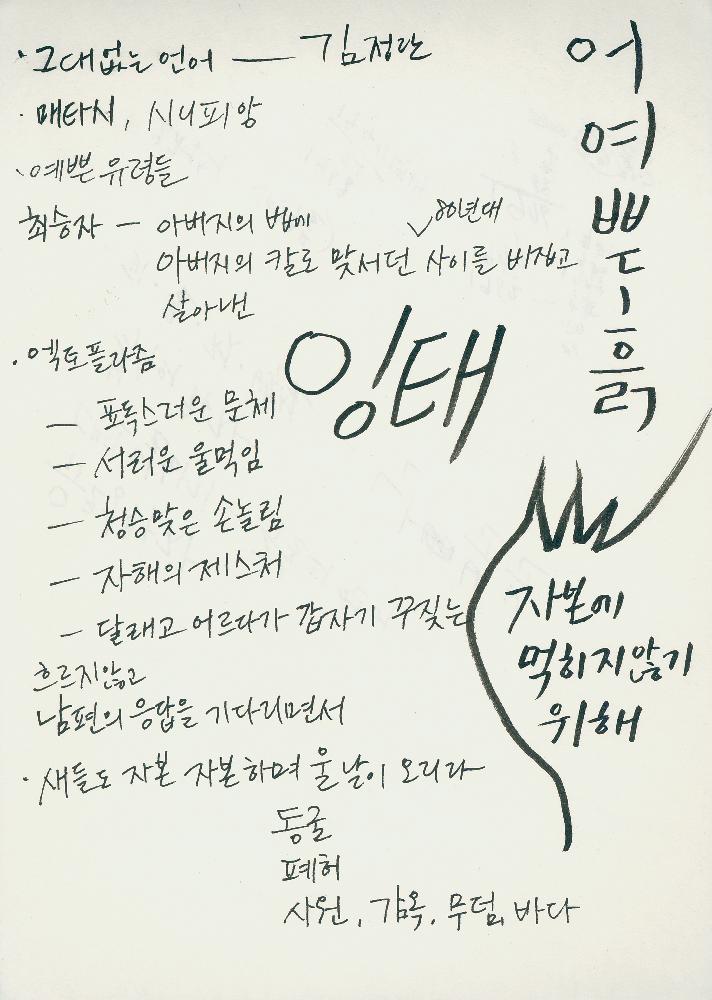 · 그대없는 언어 — 김정란
· 메타시, 시니피앙
· 예쁜 유령들
최승자 — 아버지의 법에
80년대
아버지의 칼로 맞서던 사이를 비집고
살아낸
· 엑토플라즘
— 표독스러운 문체
— 서러운 울먹임
— 청승맞은 손놀림
— 자해의 제스처
— 달래고 어르다가 갑자기 꾸짖는
흐르지않고
남편의 응답을 기다리면서
· 새들도 자본 자본하며 울 날이 오리라
동굴
폐허
사원, 감옥, 무덤, 바다
잉태
어여쁜 흙
자본에
먹히지않기
위해